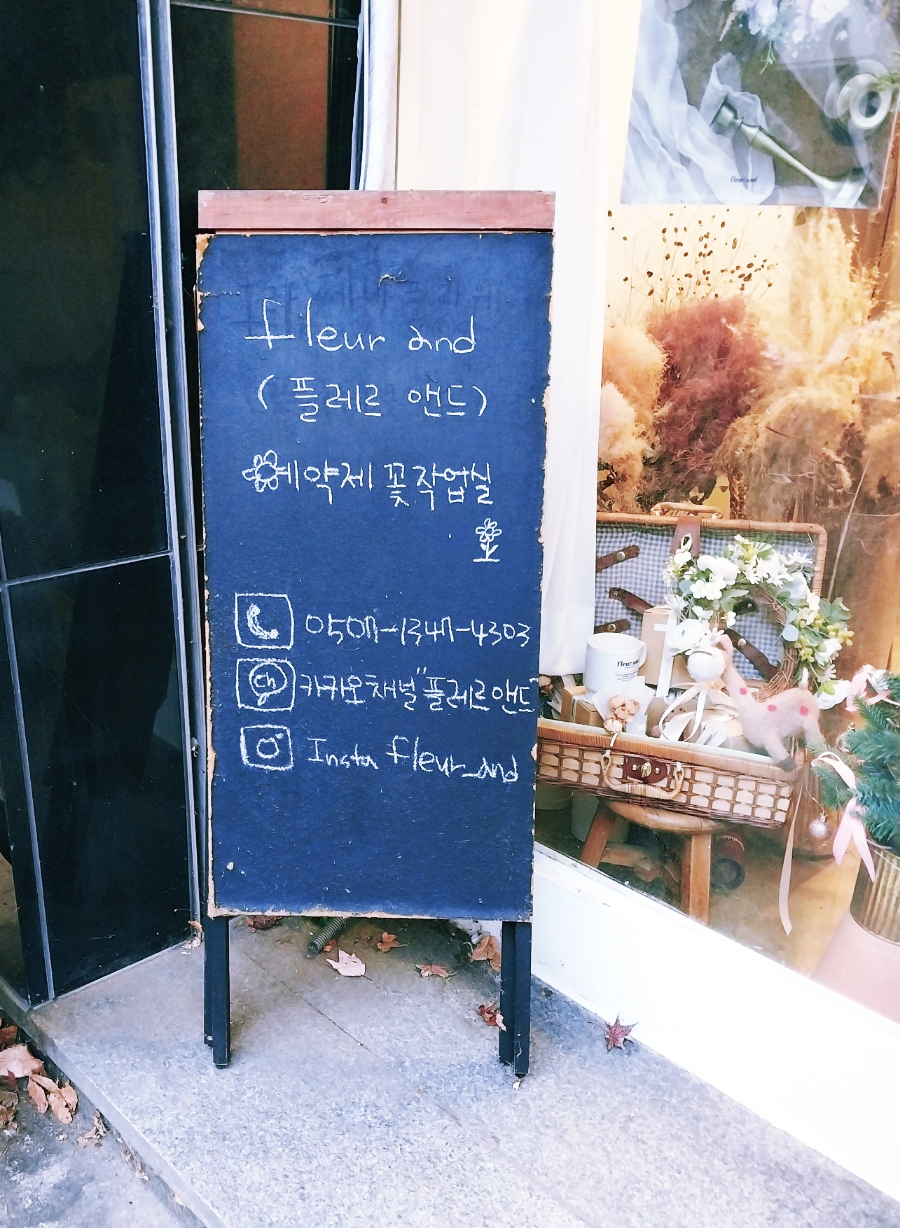 fleur and
(플레르 앤드)
예약제 꽃작업실
0507-1347-4303
Ch
카카오채널 "플레르앤드"
Insta fleur_and
fleur and
fleur and